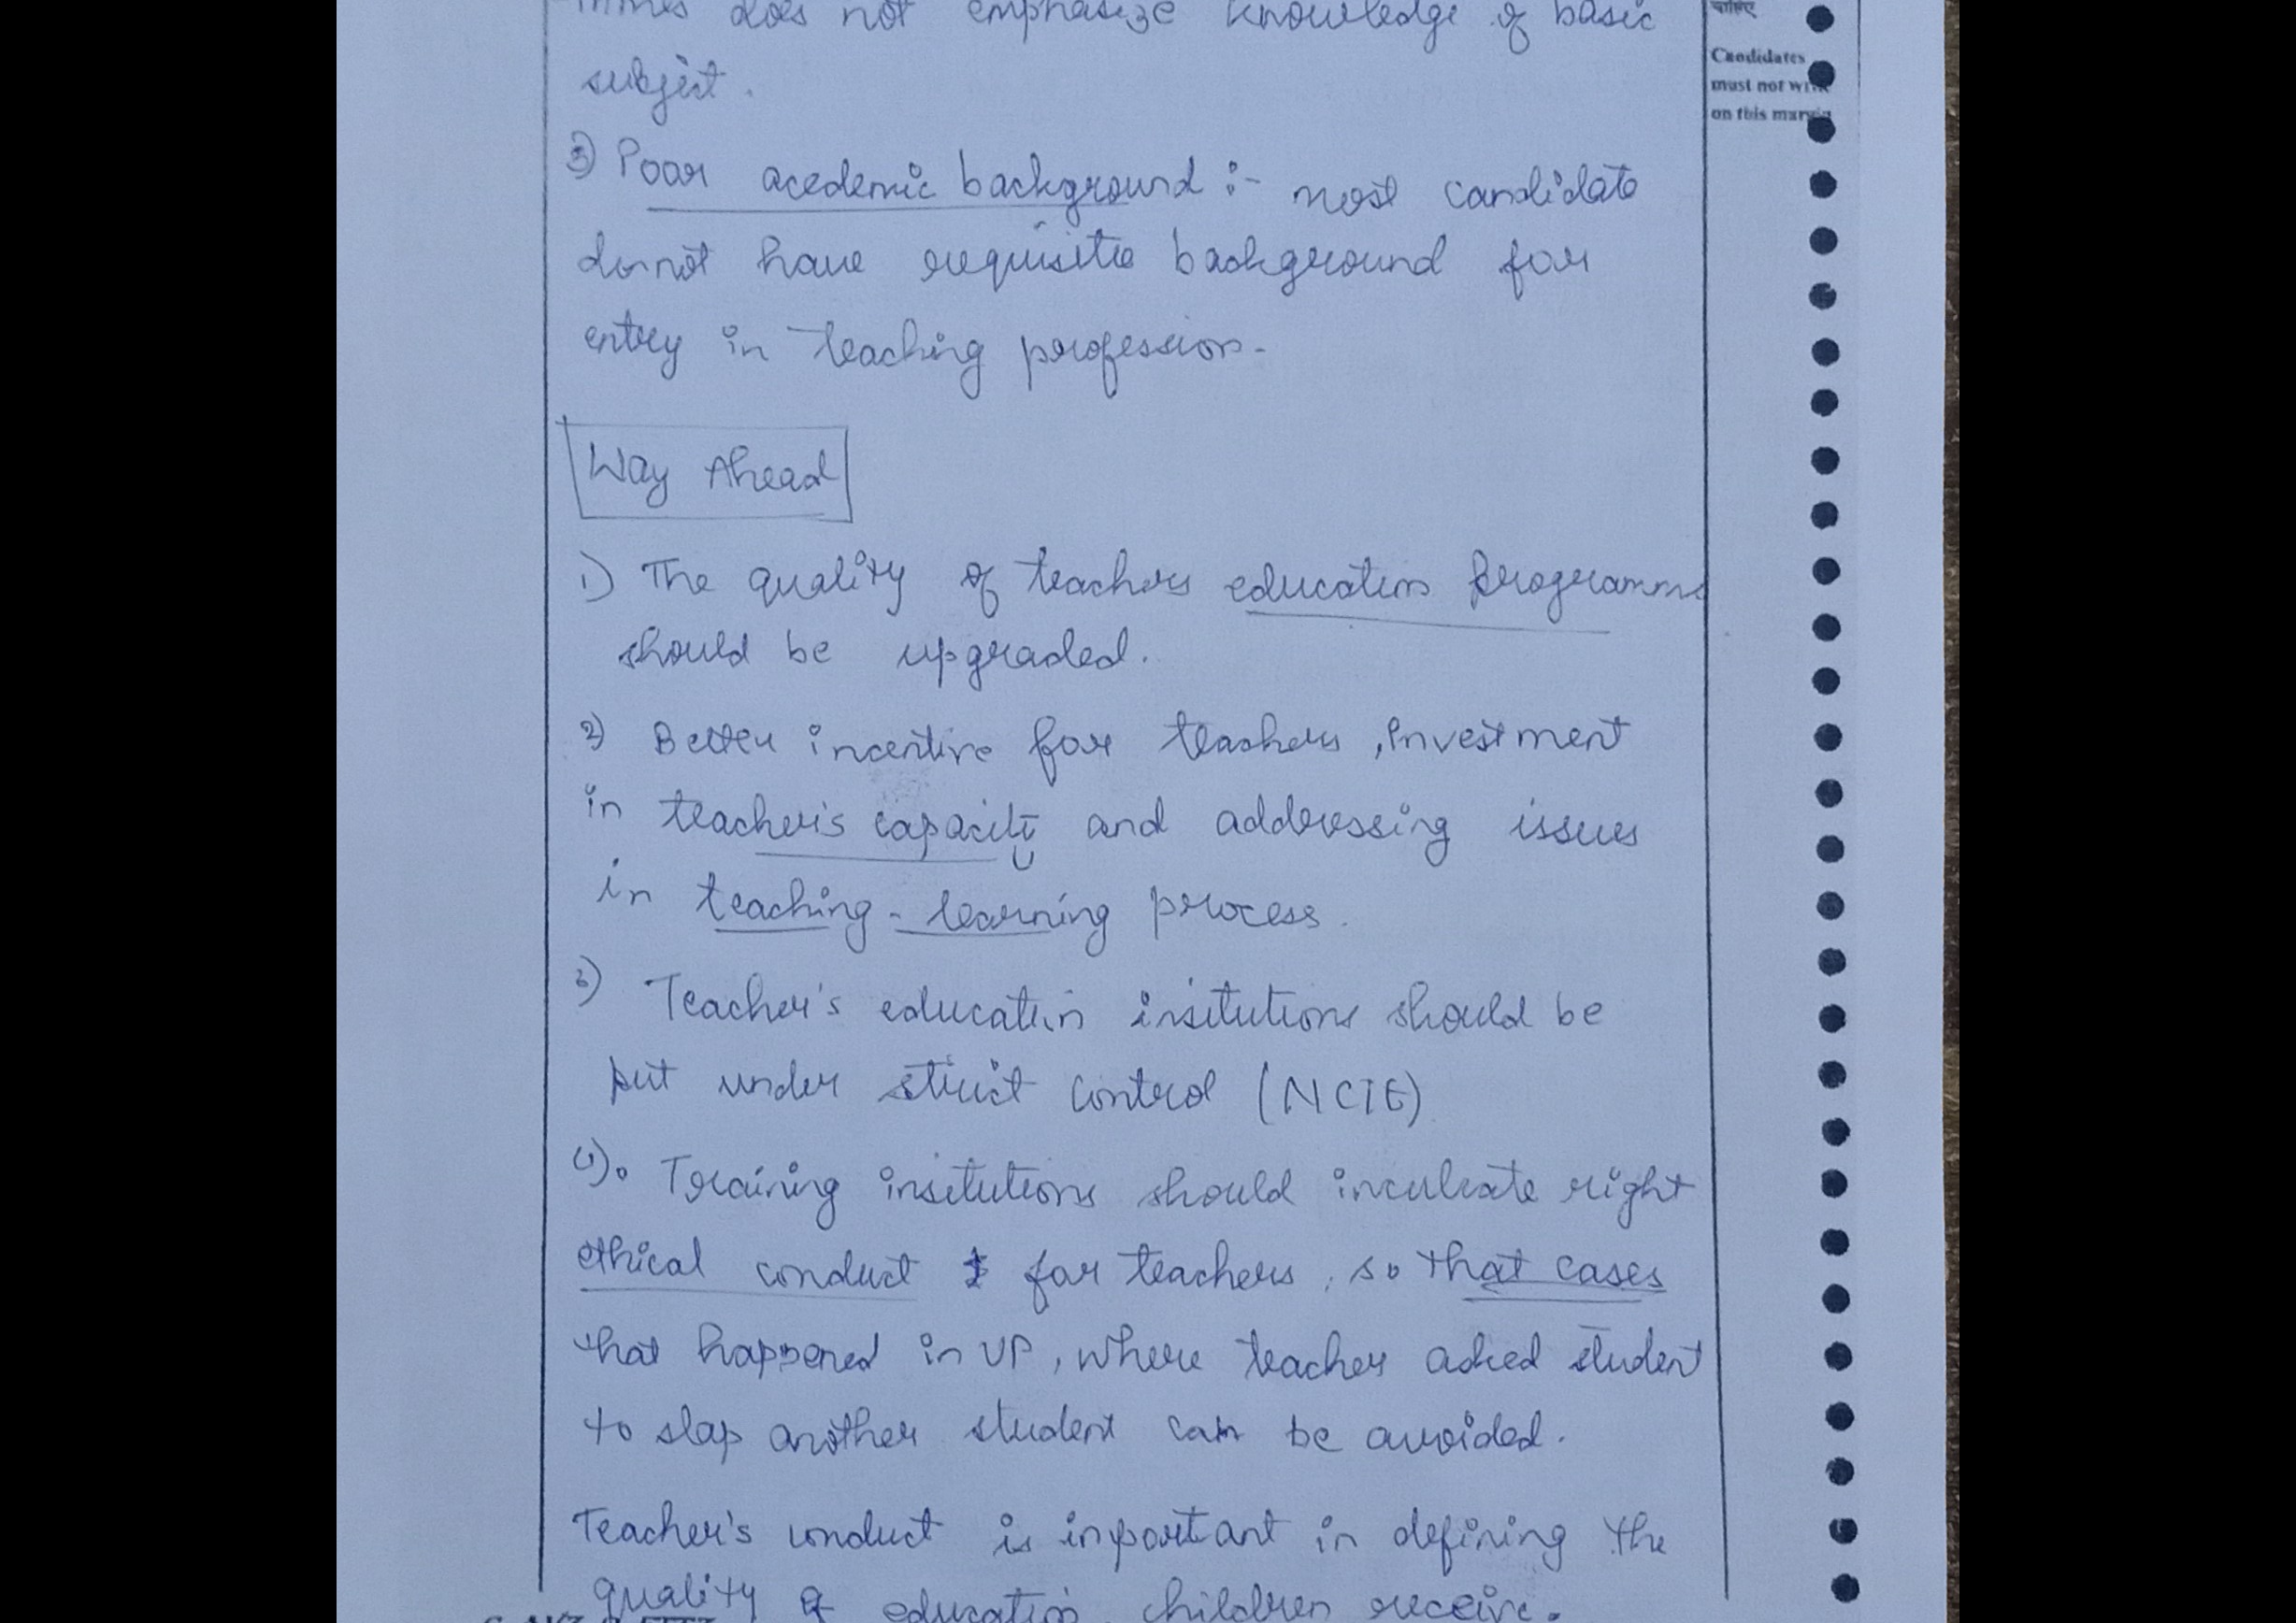 does not emphasize knowledge of basic
subject.
चाहिए
Candidates
must not write
on this margin
3) Poor acedemic background :- most candidate
donot have requisite background for
entry in teaching profession.
Way Ahead
1) The quality of teachers education Programme
should be upgraded.
2) Better incentive for teachers, investment
in teacher's capacity and addressing issues
in teaching - learning process.
3) Teacher's education insitutions should be
put under strict control (NCTE)
4). Training insitutions should inculcate right
ethical conduct for teachers, so that cases
that happened in UP, where teacher asked student
to slap another student can be avoided.
Teacher's conduct is important in defining the
quality of education children receive.